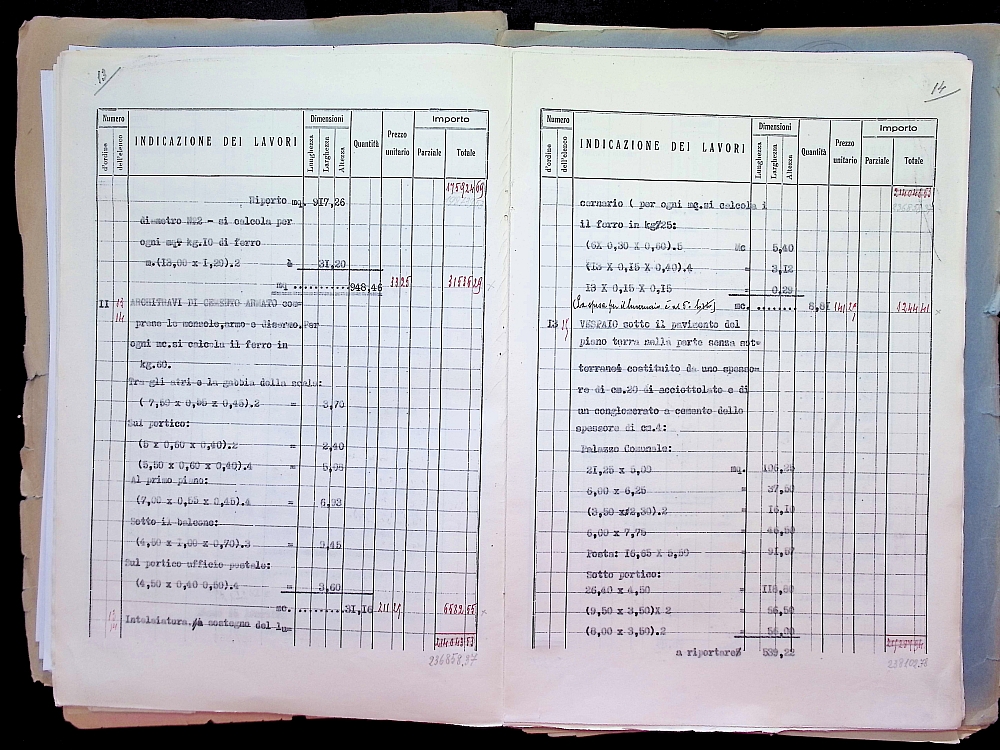 Numero
d'ordine
dell'elenco
INDICAZIONE DEI LAVORI
Dimensioni
Lunghezza
Larghezza
Altezza
Quantità
Prezzo
unitario
Importo
Parziale
Totale
Riporto mq. 917,26
diametro - si calcola per
ogni mq. kg.10 di ferro
m.(13,00 x 1,20).2 = 31,20
mq ........... 948,46 33 25
11 ARCHITRAVI DI CEMENTO ARMATO com-
prese le mensole, armo e disarmo. Per
ogni mc.si calcola il ferro in
kg.60.
Tra gli atri e la gabbia della scala:
( 7,50 x 0,55 x 0,45).2 = 3,70
Sul portico:
(5 x 0,60 x 0,40).2 = 2,40
(5,50 x 0,60 x 0,40).4 =
Al primo piano:
(7,00 x 0,55 x 0,45).4 = 6,93
Sotto il balcone:
(4,50 x 1,00 x 0,70).3 = 9,45
Sul portico ufficio postale:
(4,50 x 0,40 0,50).4 = 3,60
mc. ......... 31,16 211 25 6582 55
Intelaiatura a sostegno del lu-
214043 53
236858,97
14
Numero
d'ordine
dell'elenco
INDICAZIONE DEI LAVORI
Dimensioni
Lunghezza
Larghezza
Altezza
Quantità
Prezzo
unitario
Importo
Parziale
Totale
214043 53
cernario ( per ogni mq.si calcola i
il ferro in kg 25:
(6X 0,30 X 0,60).5 Mc 5,40
(13 X 0,15 X 0,40).4 = 3,12
13 X 0,15 X 0,15 = 0,29
(La spesa pel lucernario è al 5° lotto) mc. ........ 8,81 141 25 1244 41
13 VESPAIO sotto il pavimento del
piano terra nella parte senza sot-
terranei costituito da uno spesso-
re di cm.20 di acciottolato e di
un conglomerato a cemento dello
spessore di cm.4:
Palazzo Comunale:
21,25 x 5,00 mq. 106,25
6,00 x 6,25 = 37,50
(3,50 x 2,30).2 = 16,10
6,00 x 7,75 = 46,50
Posta: 16,65 X 5,50 = 91,57
Sotto portico:
26,40 x 4,50 = 118,80
(9,50 x 3,50)X 2 = 66,50
(8,00 x 3,50).2 = 56,00
a riportare 539,22